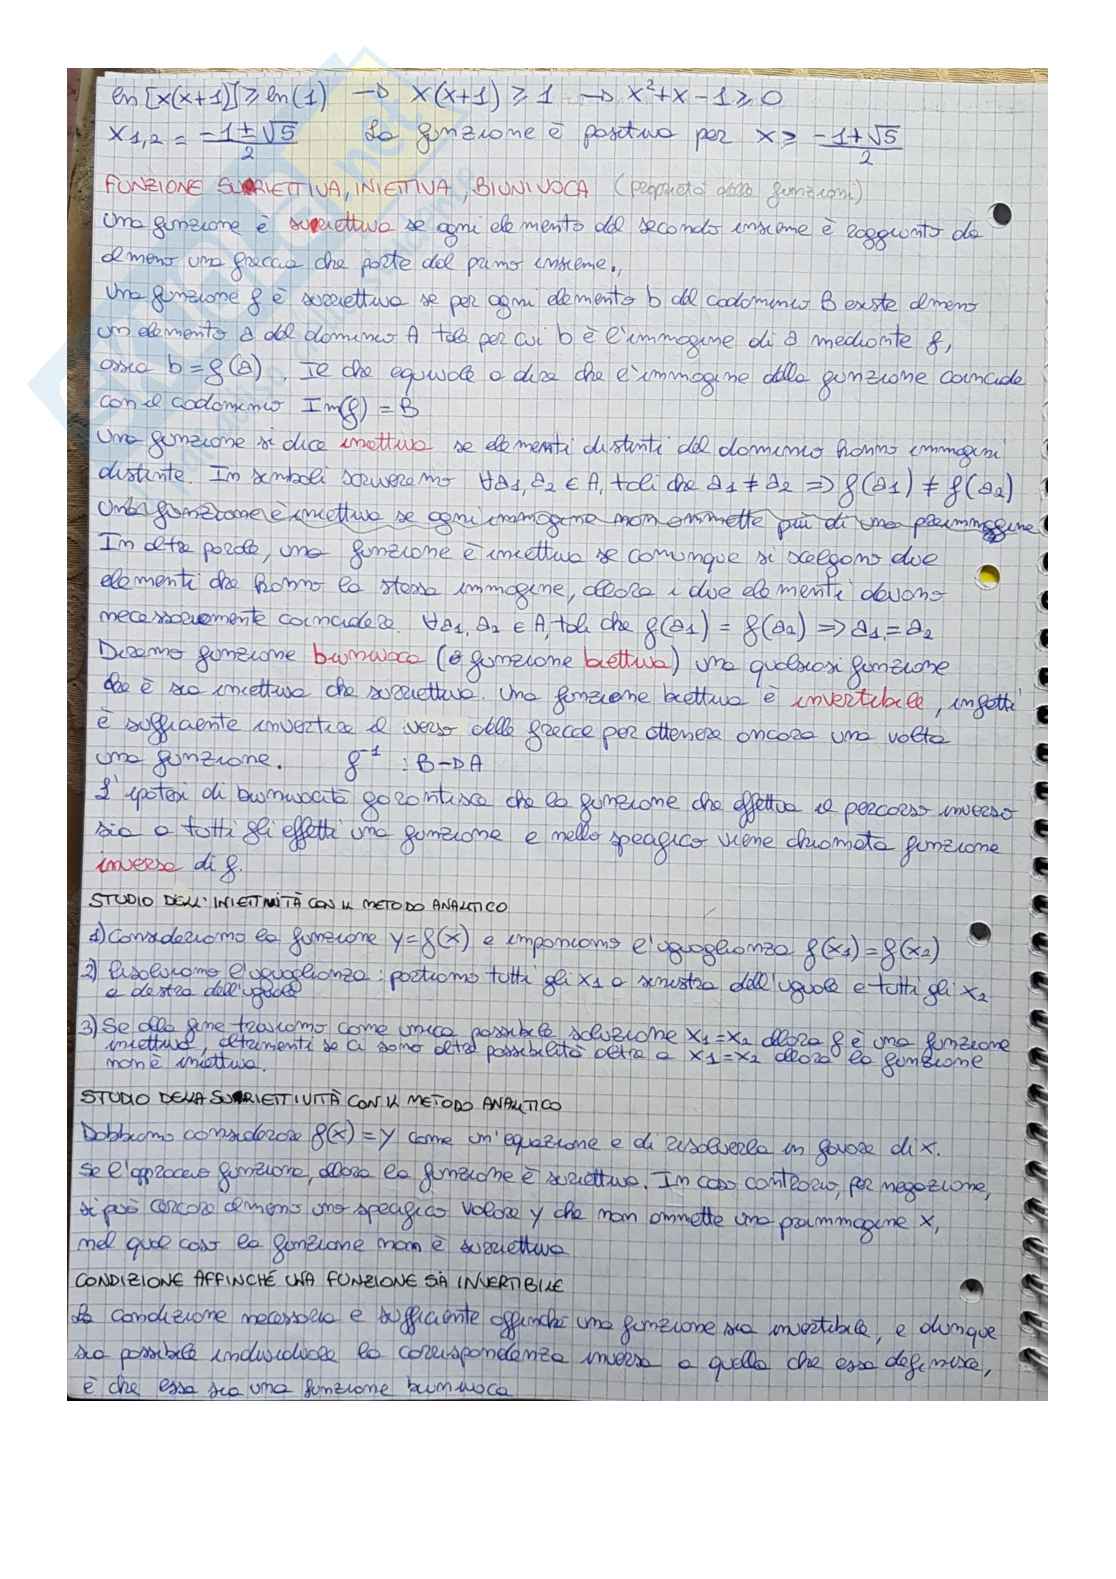 ln[x(x+1)] ≥ ln(1) → x(x+1) ≥ 1 → x²+x-1 ≥ 0
x1,2 = (-1±√5)/2 La funzione è positiva per x ≥ (-1+√5)/2
FUNZIONE SURIETTIVA, INIETTIVA, BIUNIVOCA (proprietà delle funzioni)
Una funzione è suriettiva se ogni elemento del secondo insieme è raggiunto da
almeno una freccia che parte dal primo insieme.
Una funzione f è suriettiva se per ogni elemento b del codominio B esiste almeno
un elemento a del dominio A tale per cui b è l'immagine di a mediante f,
ossia b = f(a). Il che equivale a dire che l'immagine della funzione coincide
con il codominio Im(f) = B
Una funzione si dice iniettiva se elementi distinti del dominio hanno immagini
distinte. In simboli scriveremo ∀a1, a2 ∈ A, tali che a1 ≠ a2 ⇒ f(a1) ≠ f(a2)
Una funzione è iniettiva se ogni immagine non ammette più di una preimmagine
In altre parole, una funzione è iniettiva se comunque si scelgono due
elementi che hanno la stessa immagine, allora i due elementi devono
necessariamente coincidere. ∀a1, a2 ∈ A, tali che f(a1) = f(a2) ⇒ a1 = a2
Diremo funzione biunivoca (o funzione biettiva) una qualsiasi funzione
che è sia iniettiva che suriettiva. Una funzione biettiva è invertibile, infatti
è sufficiente invertire il verso delle frecce per ottenere ancora una volta
una funzione. f⁻¹ : B → A
L'ipotesi di biunivocità garantisce che la funzione che effettua il percorso inverso
sia a tutti gli effetti una funzione e nello specifico viene chiamata funzione
inversa di f.
STUDIO DELL'INIETTIVITÀ CON IL METODO ANALITICO
1) Consideriamo la funzione y=f(x) e imponiamo l'uguaglianza f(x1)=f(x2)
2) Risolviamo l'uguaglianza: portiamo tutti gli x1 a sinistra dell'uguale e tutti gli x2
a destra dell'uguale
3) Se alla fine troviamo come unica possibile soluzione x1=x2 allora f è una funzione
iniettiva, altrimenti se ci sono altre possibilità oltre a x1=x2 allora la funzione
non è iniettiva.
STUDIO DELLA SURIETTIVITÀ CON IL METODO ANALITICO
Dobbiamo considerare f(x)=y come un'equazione e di risolverla in favore di x.
Se l'approccio funziona, allora la funzione è suriettiva. In caso contrario, per negazione,
si può cercare almeno uno specifico valore y che non ammette una preimmagine x,
nel qual caso la funzione non è suriettiva
CONDIZIONE AFFINCHÉ UNA FUNZIONE SIA INVERTIBILE
La condizione necessaria e sufficiente affinché una funzione sia invertibile, e dunque
sia possibile individuare la corrispondenza inversa a quella che essa definisce,
è che essa sia una funzione biunivoca